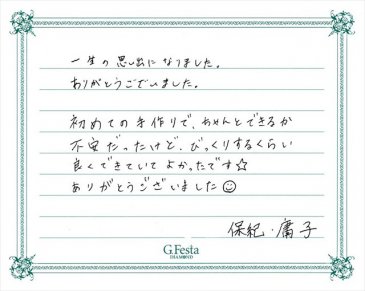 一生の思い出になりました。
ありがとうございました。
初めての手作りで、ちゃんとできるか
不安だったけど、びっくりするくらい
良くできていてよかったです☆
ありがとうございました☺
保紀・庸子
G.Festa
DIAMOND